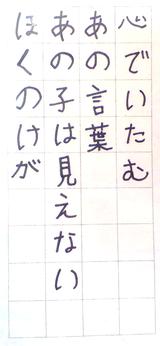 心でいたむ
あの言葉
あの子は見えない
ほくのけが